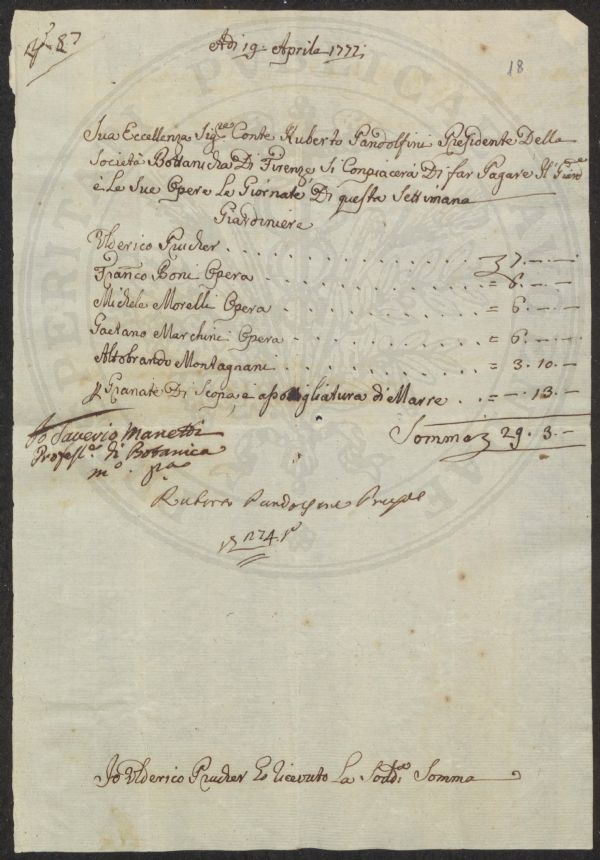 N° 87
Adi 19 Aprile 1777
18
Sua Eccellenza Sig.re Conte Ruberto Pandolfini Presidente Della
Società Bottanicha Di Firenze Si Conpiacerà Di far Pagare Il Giard.re
è Le Sue Opere Le Giornate Di questa Settimana
Giardiniere
Ulderico Prucher . . . . . . 7.—.—
Franco Boni Opera . . . . = 6.—.—
Michele Morelli Opera . . . . = 6.—.—
Gaetano Marchini Opera . . . . = 6.—.—
Altobrando Montagnani . . . . = 3.10.—
p Granate Di Scopa, e apuntigliatura di Marre . . = —.13.—
Somma 29.3.—
Io Saverio Manetti
Profess.e di Botanica
m.o p.a
Ruberto Pandolfini Presid.e
1274
Io Ulderico Prucher Ho Ricevuto La Sod.a Somma